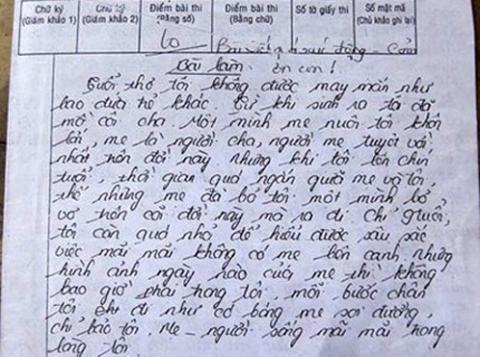 Chữ ký Chữ ký Điểm bài thi Điểm bài thi Số tờ giấy thi Số mật mã
(Giám khảo 1) (Giám khảo 2) (Bằng số) (Bằng chữ) (Chủ khảo ghi lại)
10 Bài viết quá xúc động - Cảm
Bài làm ơn con!
Tuổi thơ tôi không được may mắn như
bao đứa trẻ khác. Từ khi sinh ra tôi đã
mồ côi cha. Một mình mẹ nuôi tôi khôn
lớn, mẹ là người cha, người mẹ tuyệt vời
nhất trên đời này nhưng khi tôi lên chín
tuổi, thời gian quá ngắn quá mẹ và tôi,
thế nhưng mẹ đã bỏ tôi một mình bơ
vơ trên cõi đời này mà ra đi. Chỉ 9 tuổi,
tôi còn quá nhỏ để hiểu được sâu sắc
việc mãi mãi không có mẹ bên cạnh nhưng
hình ảnh ngày nào của mẹ thì không
bao giờ phai trong tôi, mỗi bước chân
tôi đi như có bóng mẹ soi đường,
chỉ bảo tôi. Mẹ - người sống mãi mãi trong
lòng tôi.